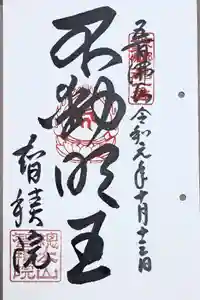 五百佛山 令和元年十月十三日
不動明王
智積院